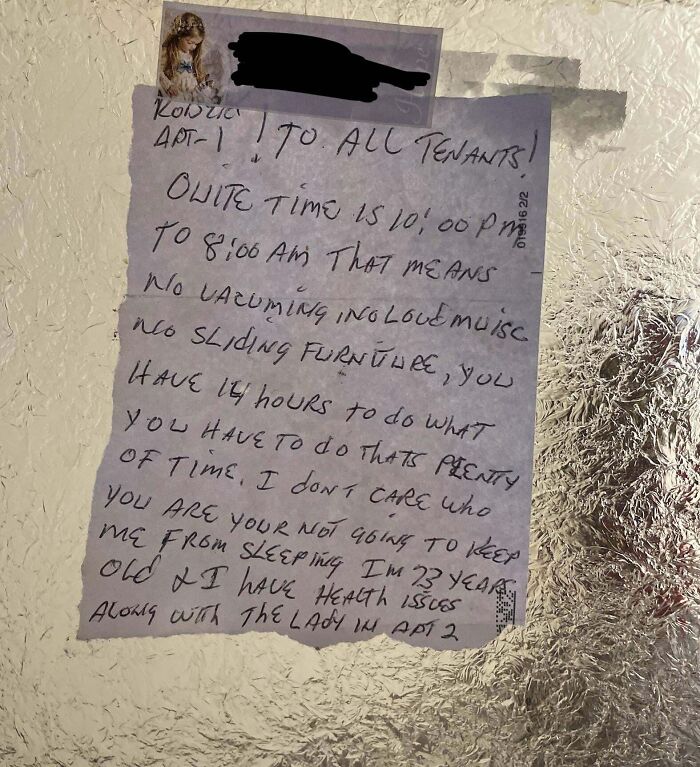 APT-1 ! TO ALL TENANTS!
QUITE TIME IS 10:00 PM
TO 8:00 AM THAT MEANS
NO VACUMING, NO LOUD MUISC
NO SLIDING FURNITURE, YOU
HAVE 14 HOURS TO do WHAT
YOU HAVE TO do THATS PLENTY
OF TIME. I DON'T CARE WHO
YOU ARE YOUR NOT GOING TO KEEP
ME FROM SLEEPING I'M 73 YEARS
OLD & I HAVE HEALTH ISSUES
ALONG WITH THE LADY IN APT 2